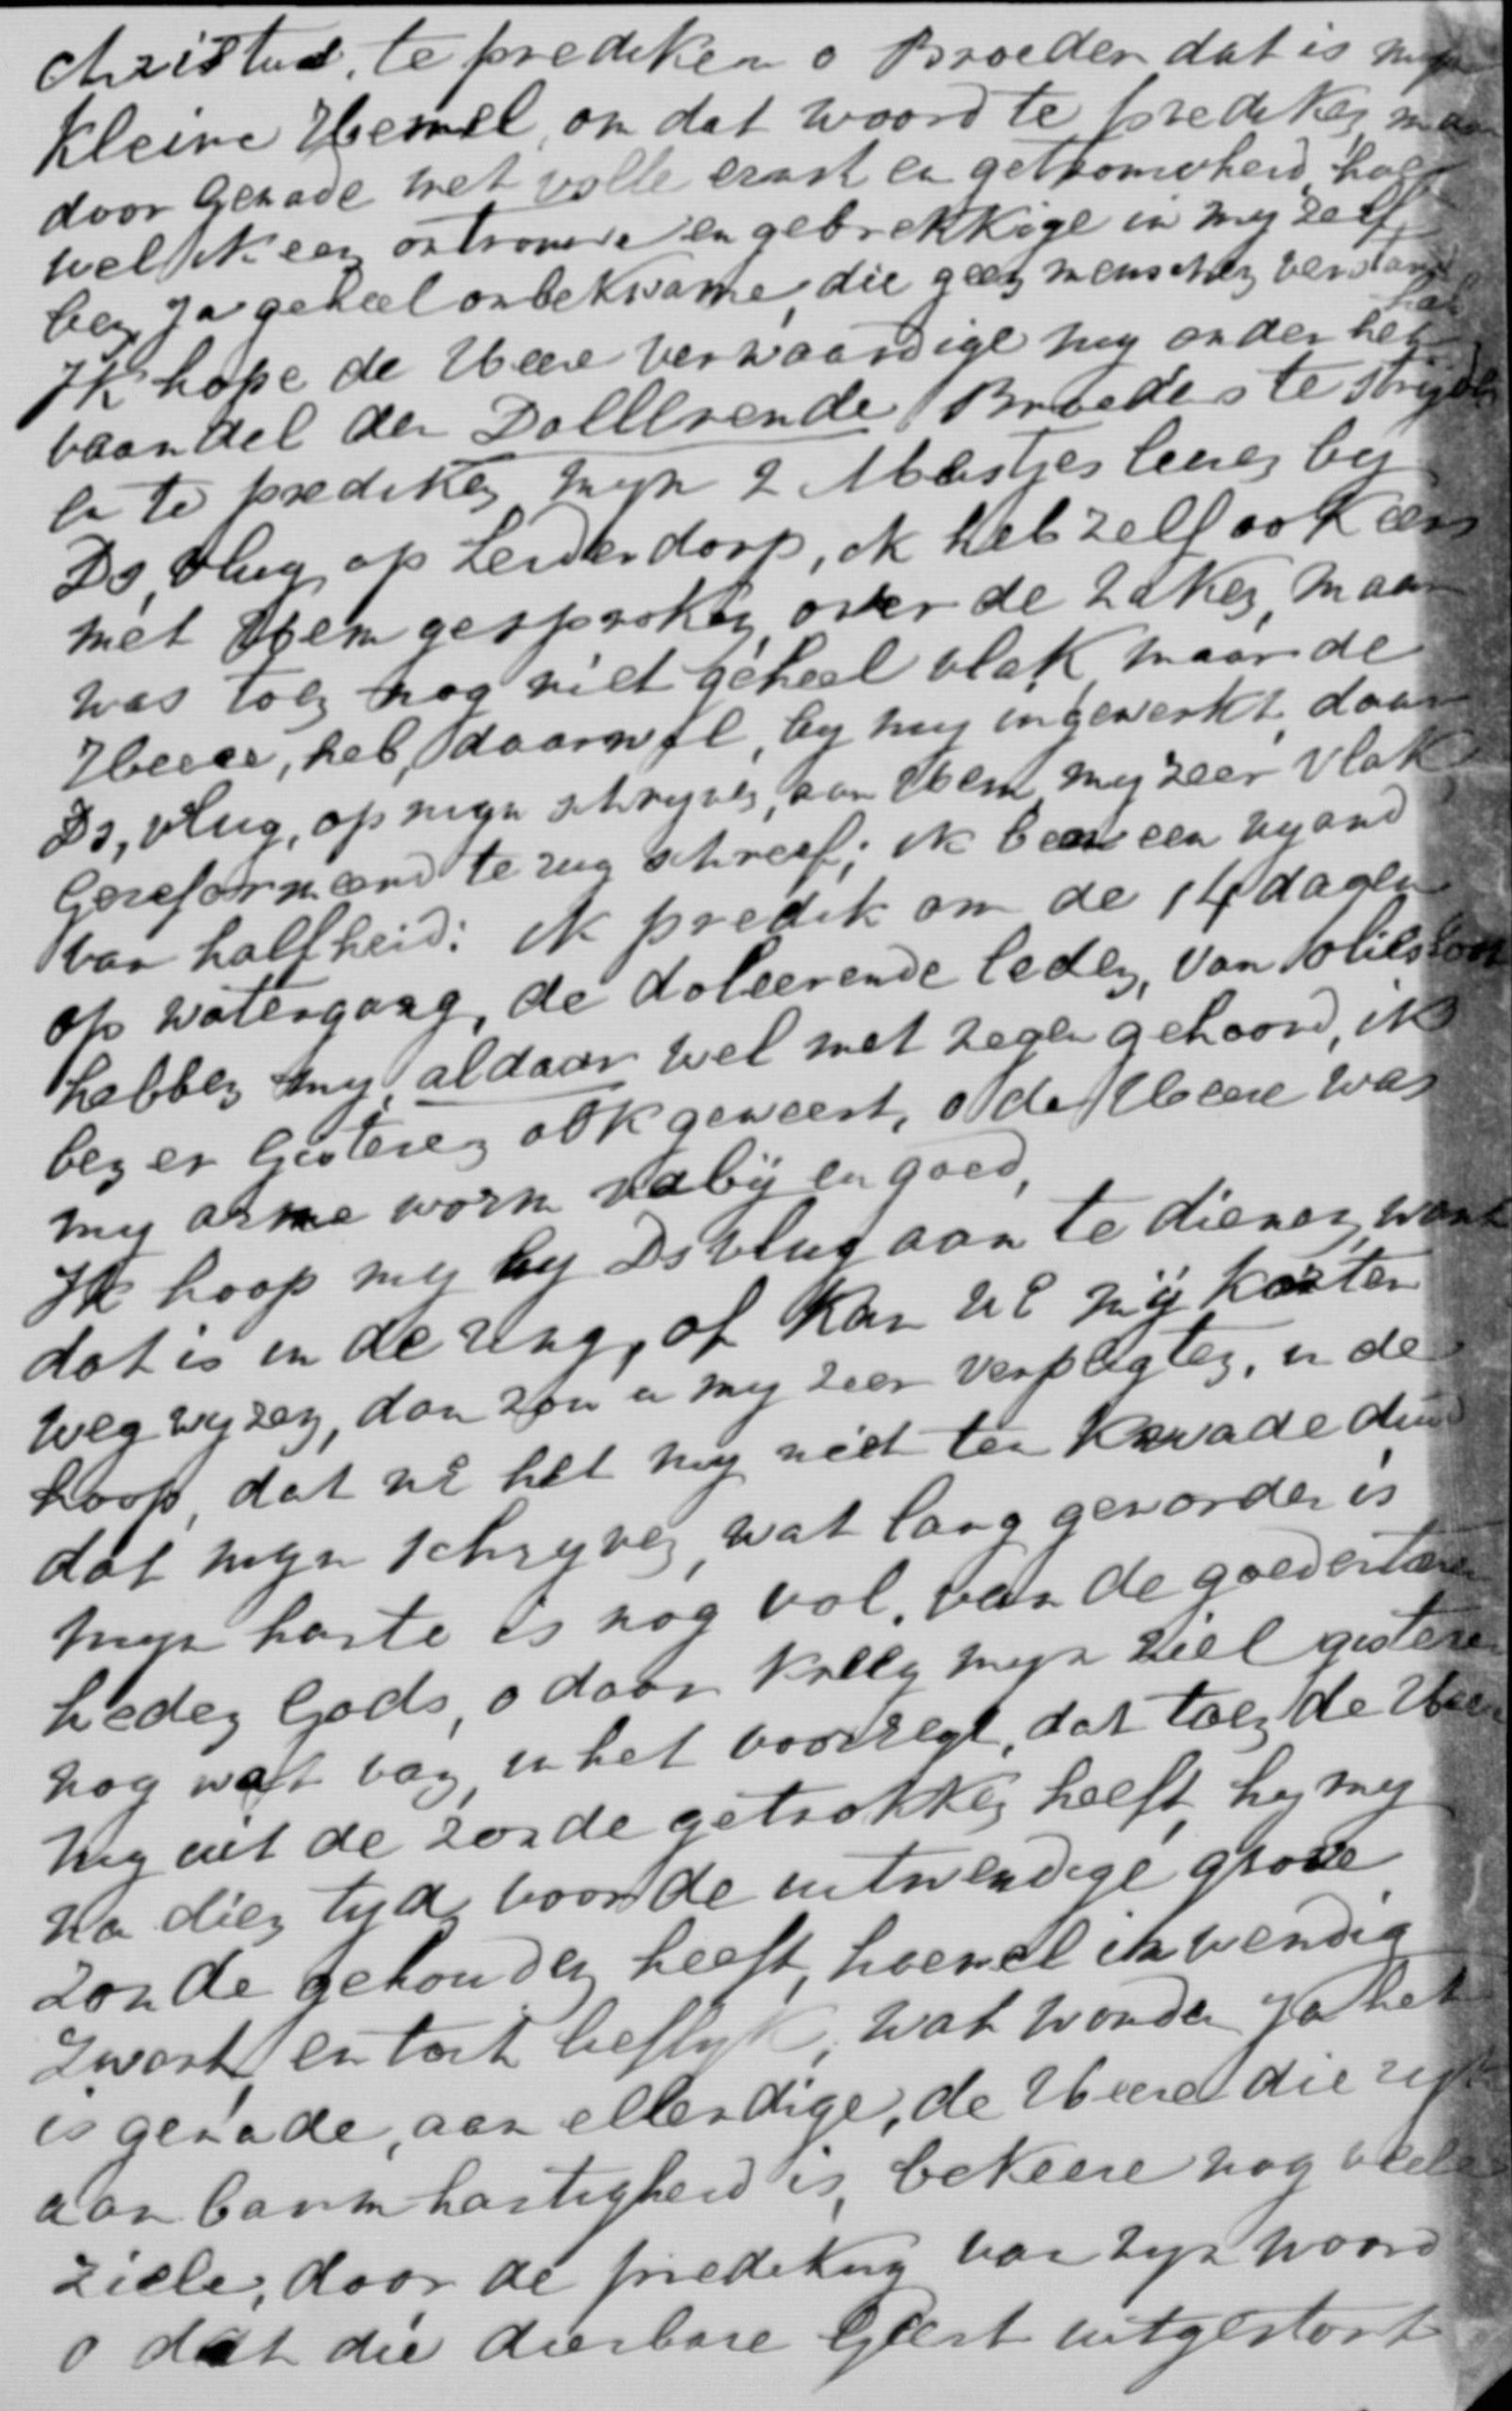 Christus, te prediken o Broeder dat is myn
kleine Hemel, om dat woord te prediken, maar
door Genade met volle ernst en getrouwheid, hoe
wel ik een ontrouwe en gebrekkige in my zelf
ben, Ja geheel onbekwame, die geen menschen verstand
heb
Ik hope de Heere verwaardige my onder het
vaandel der Dolllrende Broeders te stryden
en te prediken, myn 2 Meisjes leeren by
Ds, Vlug, op Leiderdorp, ik heb zelf ook eens
met Hem gesproken, over de zaken, maar
was toen nog niet geheel vlak, maar de
Heere, heb, daarwyl, by my ingewerkt, daar
Ds, Vlug, op myn schryven, aan Hem, my zeer vlak
Gereformeerd te rug schreef; ik ben een vyand
van halfheid: ik predik om de 14 dagen
op watergang, de doleerende leden, van
hebben my, aldaar wel met zegen gehoord, ik
ben er Gisteren ook geweest, o de Heere was
my arme worm naby en goed,
Ik hoop my by Ds Vlug aan te dienen, want
dat is in de ring, of kan UE my korter
weg wyzen, dan zou u my zeer verpligten, in de
hoop, dat UE het my niet ten kwade duid
dat myn schryven, wat lang geworden is
myn harte is nog vol, van de goedertieren
heden Gods, o daar kreeg myn ziel gisteren
nog wat van, in het voorregt, dat toen de Heere
my uit de zonde getrokken heeft, hy my
na dien tyd, voor de uitwendige grove
zonde gehouden heeft, hoewel inwendig
zwart, en toch lieflyk, wat wonder, Ja het
is genade, aan ellendige, de Heere die ryk
aan barmhartigheid is, bekeere nog vele
ziele, door de prediking van zyn woord
o dat die dierbare Geest uitgestort